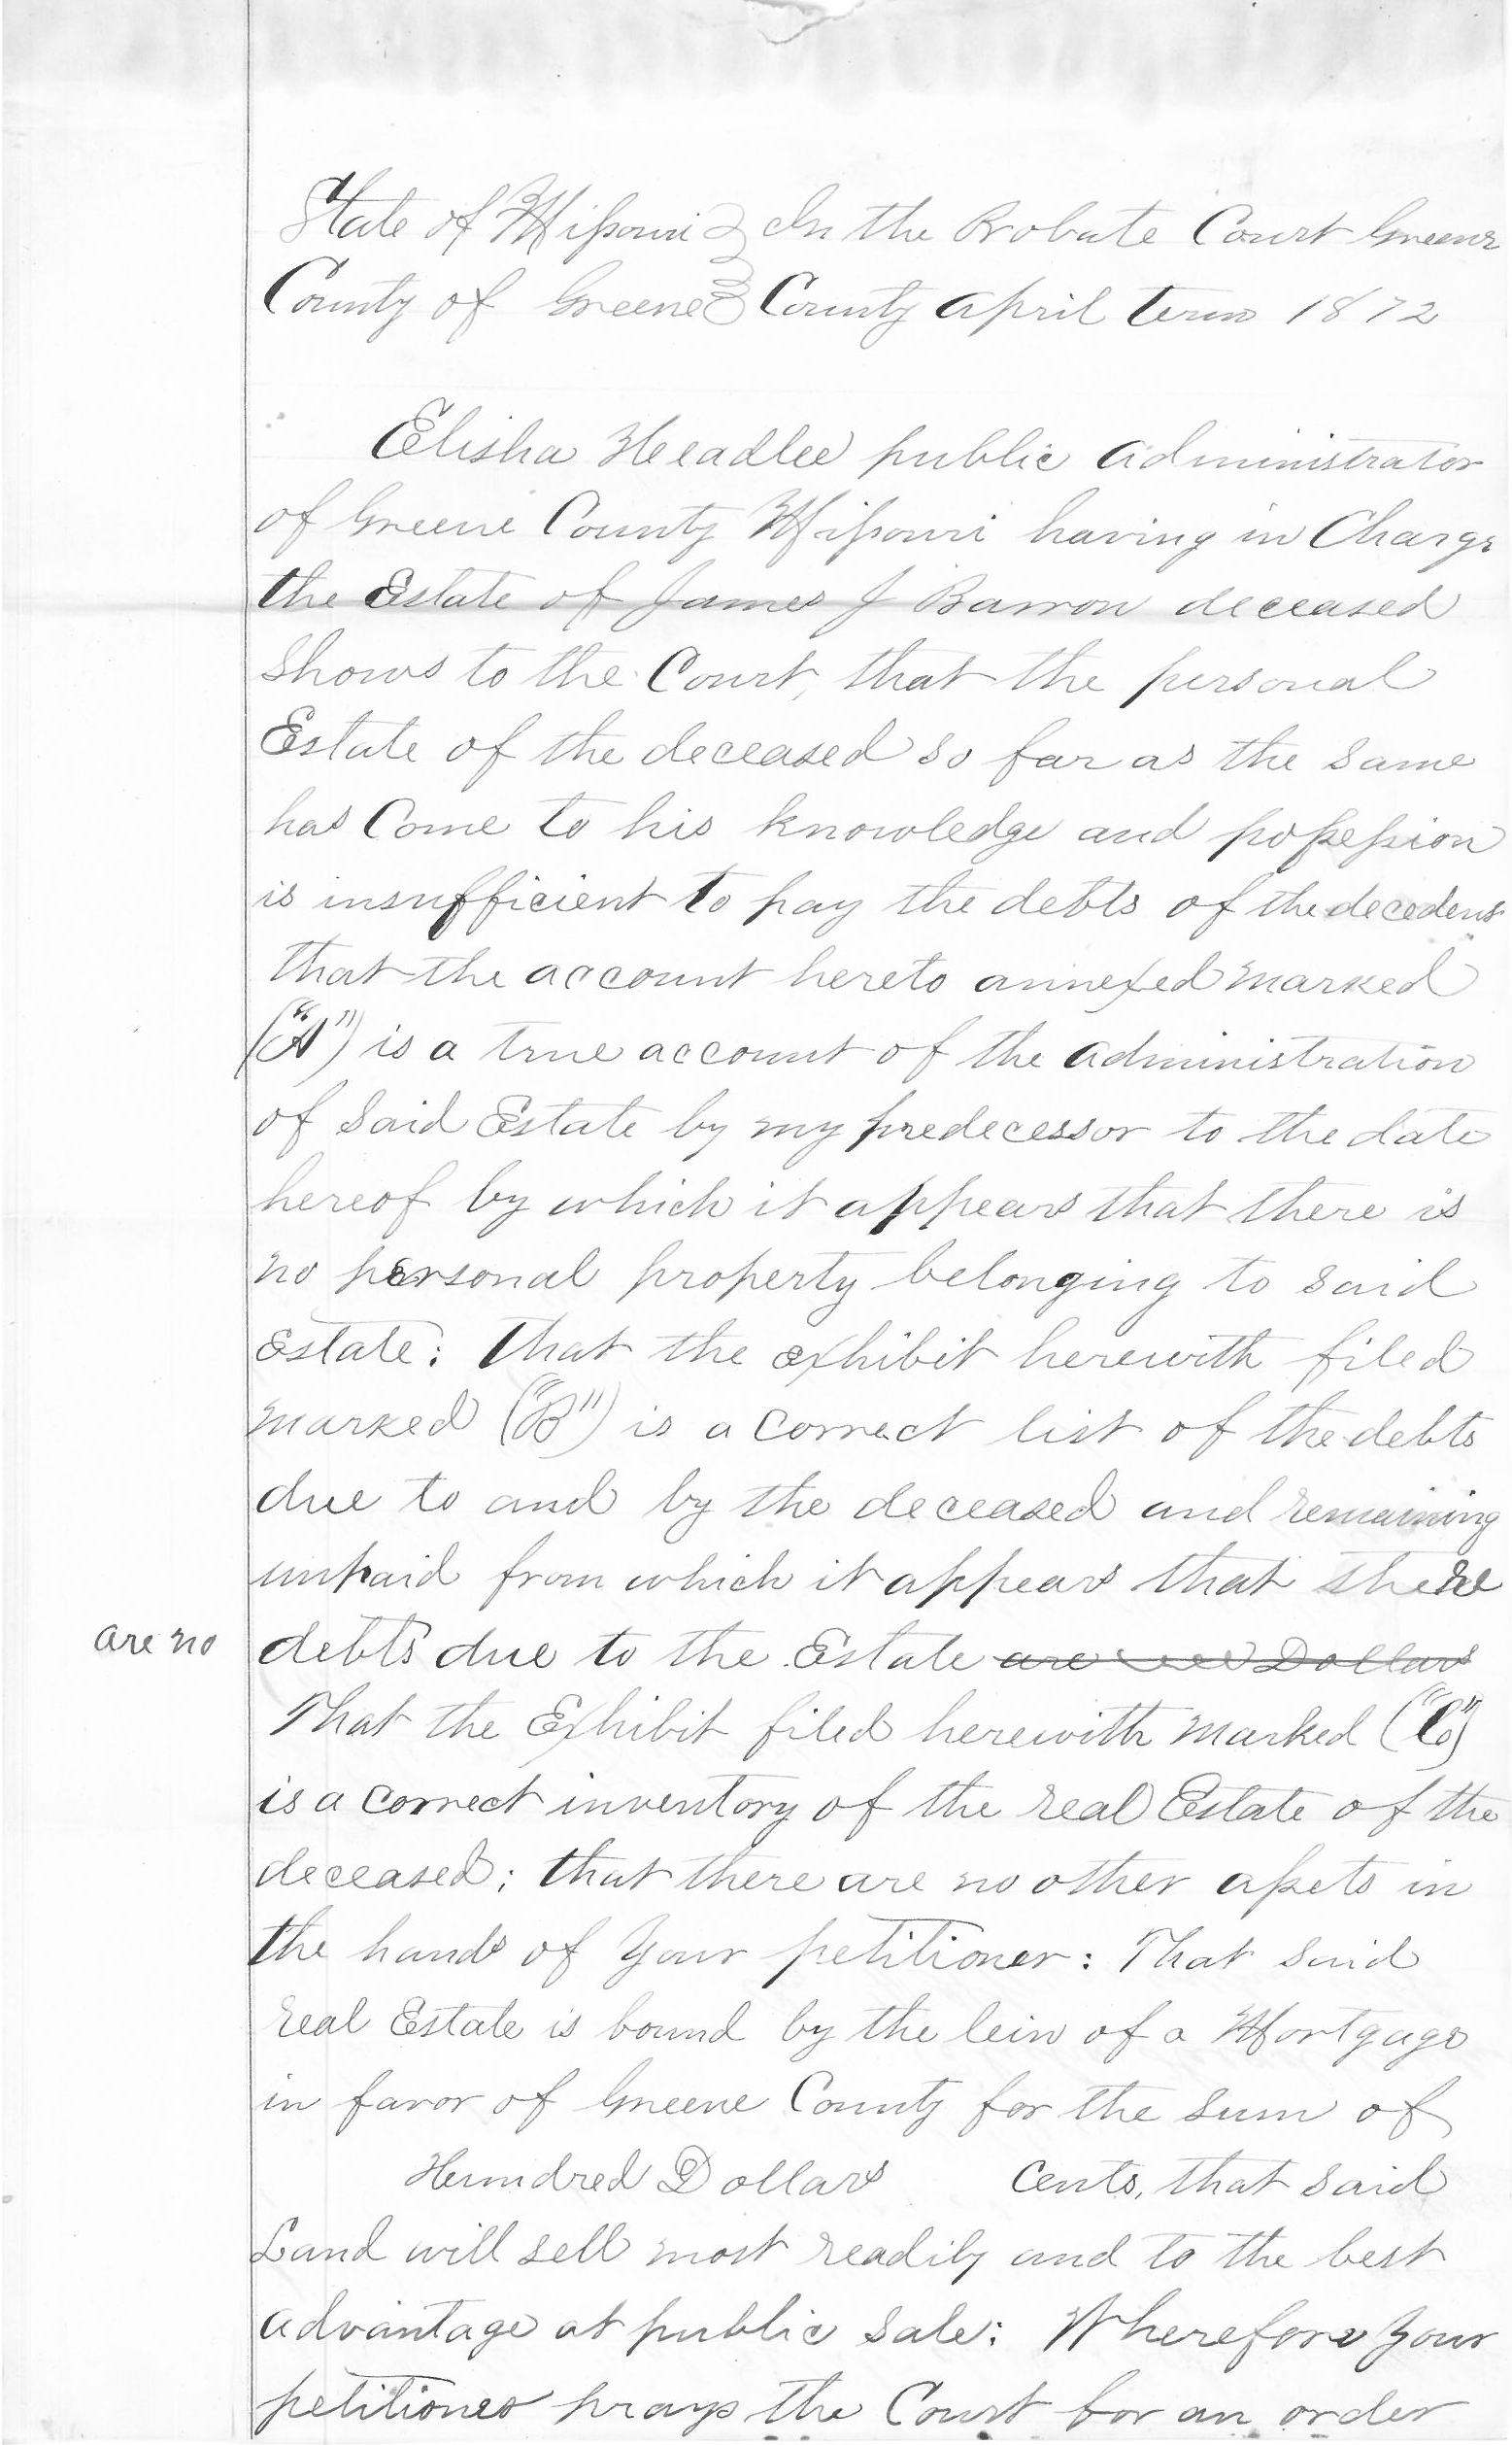 State of Missouri } In the Probate Court Greene
County of Greene } County April term 1872
Elisha Headlee public administrator
of Greene County Missouri having in Charge
the Estate of James J Barron deceased
Shows to the Court, that the personal
Estate of the deceased so far as the same
has Come to his knowledge and possession
is insufficient to pay the debts of the decedent
that the account hereto annexed marked
("A") is a true account of the administration
of Said Estate by my predecessor to the date
hereof by which it appears that there is
no personal property belonging to said
Estate: that the exhibit herewith filed
marked ("B") is a correct list of the debts
due to and by the deceased and remaining
unpaid from which it appears that there
are no debts due to the Estate are Dollars
That the Exhibit filed herewith marked ("C")
is a correct inventory of the real Estate of the
deceased; that there are no other assets in
the hands of your petitioner: That said
real Estate is bound by the lein of a Mortgage
in favor of Greene County for the sum of
Hundred Dollars cents, that said
Land will sell most readily and to the best
advantage at public sale: Wherefore your
petitioner prays the Court for an order